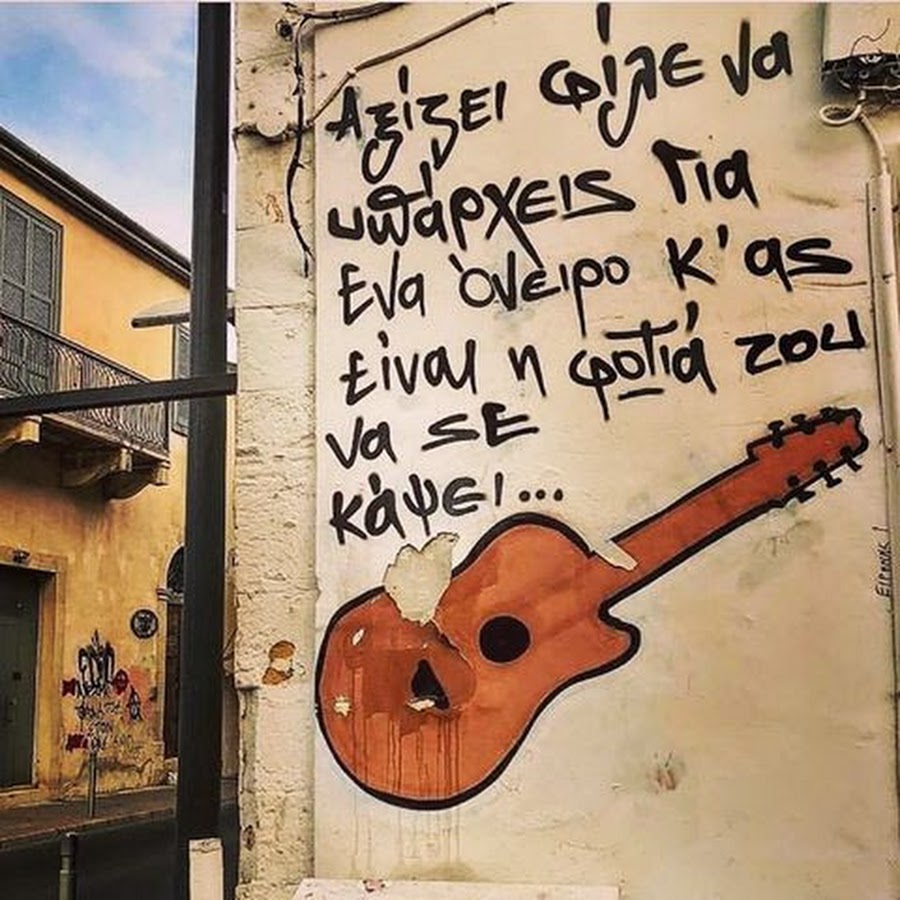 Αξίζει φίλε να
υπάρχεις για
Ενα όνειρο κ'ας
είναι η φοτιά του
να σε
κάψει...